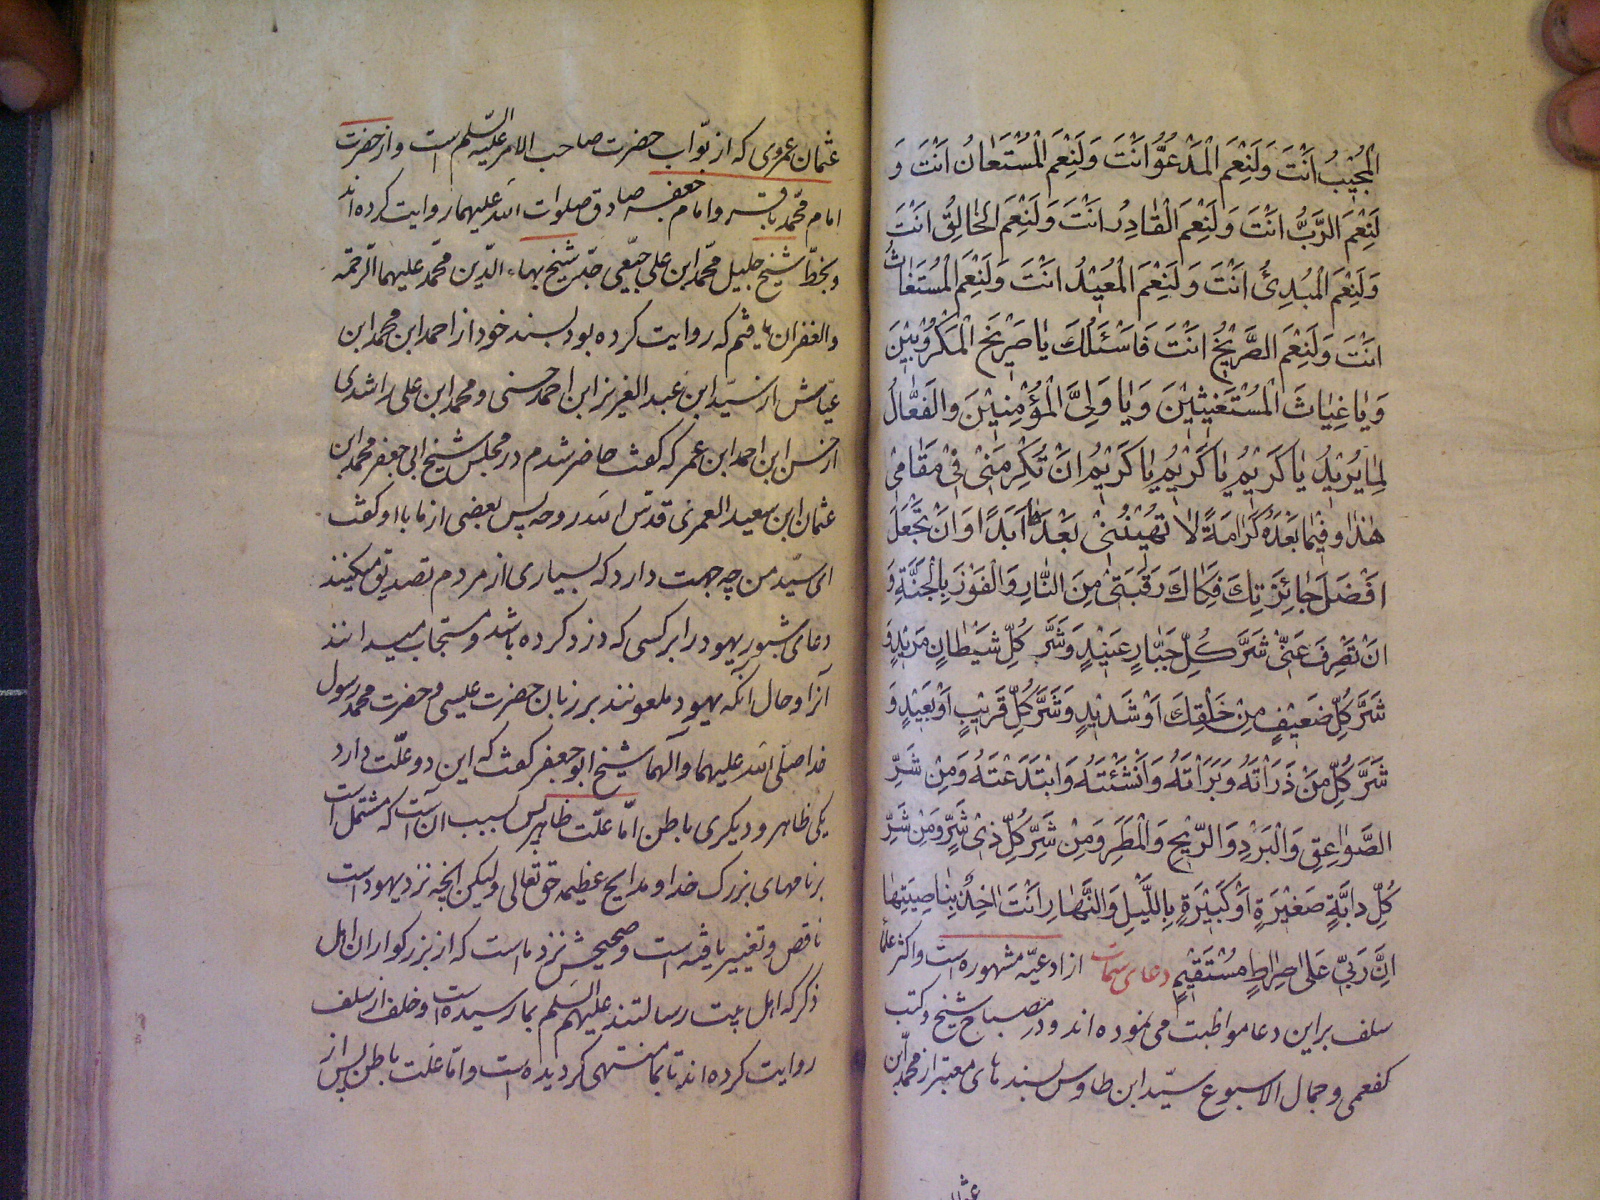 الْمُجِيبُ اَنْتَ وَلَنِعْمَ الْمَدْعُوُّ اَنْتَ وَلَنِعْمَ الْمُسْتَعَانُ اَنْتَ وَ
لَنِعْمَ الرَّبُّ اَنْتَ وَلَنِعْمَ الْقَادِرُ اَنْتَ وَلَنِعْمَ الْخَالِقُ اَنْتَ
وَلَنِعْمَ الْمُبْدِئُ اَنْتَ وَلَنِعْمَ الْمُعِيْدُ اَنْتَ وَلَنِعْمَ الْمُسْتَغَاثُ
اَنْتَ وَلَنِعْمَ الصَّرِيْخُ اَنْتَ فَاَسْئَلُكَ يَا صَرِيْخَ الْمَكْرُوْبِيْنَ
وَيَا غِيَاثَ الْمُسْتَغِيْثِيْنَ وَيَا وَلِىَّ الْمُؤْمِنِيْنَ وَالْفَعَّالُ
لِمَا يُرِيْدُ يَا كَرِيْمُ يَا كَرِيْمُ يَا كَرِيْمُ اَنْ تُكْرِمَنِىْ فِىْ مَقَامِىْ
هٰذَا وَفِيْمَا بَعْدَهُ كَرَامَةً لَا تُهِيْنُنِىْ بَعْدَهَا اَبَدًا وَاَنْ تَجْعَلَ
اَفْضَلَ جَائِزَتِكَ فَكَاكَ رَقَبَتِىْ مِنَ النَّارِ وَالْفَوْزَ بِالْجَنَّةِ وَ
اَنْ تَصْرِفَ عَنِّىْ شَرَّ كُلِّ جَبَّارٍ عَنِيْدٍ وَشَرَّ كُلِّ شَيْطَانٍ مَرِيْدٍ وَ
شَرَّ كُلِّ ضَعِيْفٍ مِنْ خَلْقِكَ اَوْ شَدِيْدٍ وَشَرَّ كُلِّ قَرِيْبٍ اَوْ بَعِيْدٍ وَ
شَرَّ كُلِّ مَنْ ذَرَاْتَهُ وَبَرَاْتَهُ وَاَنْشَئْتَهُ وَابْتَدَعْتَهُ وَمِنْ شَرِّ
الصَّوَاعِقِ وَالْبَرْدِ وَالرِّيْحِ وَالْمَطَرِ وَمِنْ شَرِّ كُلِّ ذِىْ شَرٍّ وَمِنْ شَرِّ
كُلِّ دَابَّةٍ صَغِيْرَةٍ اَوْ كَبِيْرَةٍ بِاللَّيْلِ وَالنَّهَارِ اَنْتَ اٰخِذٌ بِنَاصِيَتِهَا
اِنَّ رَبِّىْ عَلىٰ صِرَاطٍ مُسْتَقِيْمٍ دعای سمات از ادعیّه مشهوره است و اکثر علما
سلف بر این دعا مواظبت می نموده اند و در مصباح شیخ و کتب
کفعمی و جمال الاسبوع سیّد ابن طاوس بسندهای معتبر از محمّد ابن
عثمان عمروی که از نوّاب حضرت صاحب الامر علیه السّلم است و از حضرت
امام محمّد باقر و امام جعفر صادق صلوات الله علیهما روایت کرده اند
و بخطّ شیخ جلیل محمّد ابن علی جبّعی جدّ شیخ بهاء الدّین محمّد علیهما الرّحمه
والغفران یافتم که روایت کرده بود بسند خود از احمد ابن محمد ابن
عیّاش از سیّد ابن عبد العزیز ابن احمد حسنی و محمد ابن علی راشدی
از حسن ابن احمد ابن عمر که گفت حاضر شدم در مجلس شیخ ابی جعفر محمد ابن
عثمان ابن سعید العمری قدّس الله روحه پس بعضی از ما با او گفت
ای سیّد من چه جهت دارد که بسیاری از مردم تصدیق میکنند
دعای شبور یهود را بر کسی که دزد کرده باشد و مستجاب میدانند
آنرا و حال آنکه یهود ملعونند بر زبان حضرت عیسی و حضرت محمد رسول
خدا صلّی الله علیهما و آلهما شیخ ابو جعفر گفت که این دو علّت دارد
یکی ظاهر و دیگری باطن امّا علّت ظاهر پس بسبب آن است که مشتمل است
بر نامهای بزرک خدا و مدایح عظیمه حق تعالی ولیکن آنچه نزد یهود است
ناقص و تغییر یافته است و صحیحش نزد ماست که از بزرکواران اهل
ذکر که اهل بیت رسالتند علیهم السّلم بما رسیده است و خلف از سلف
روایت کرده اند تا بما منتهی کردیده است و امّا علّت باطن پس از